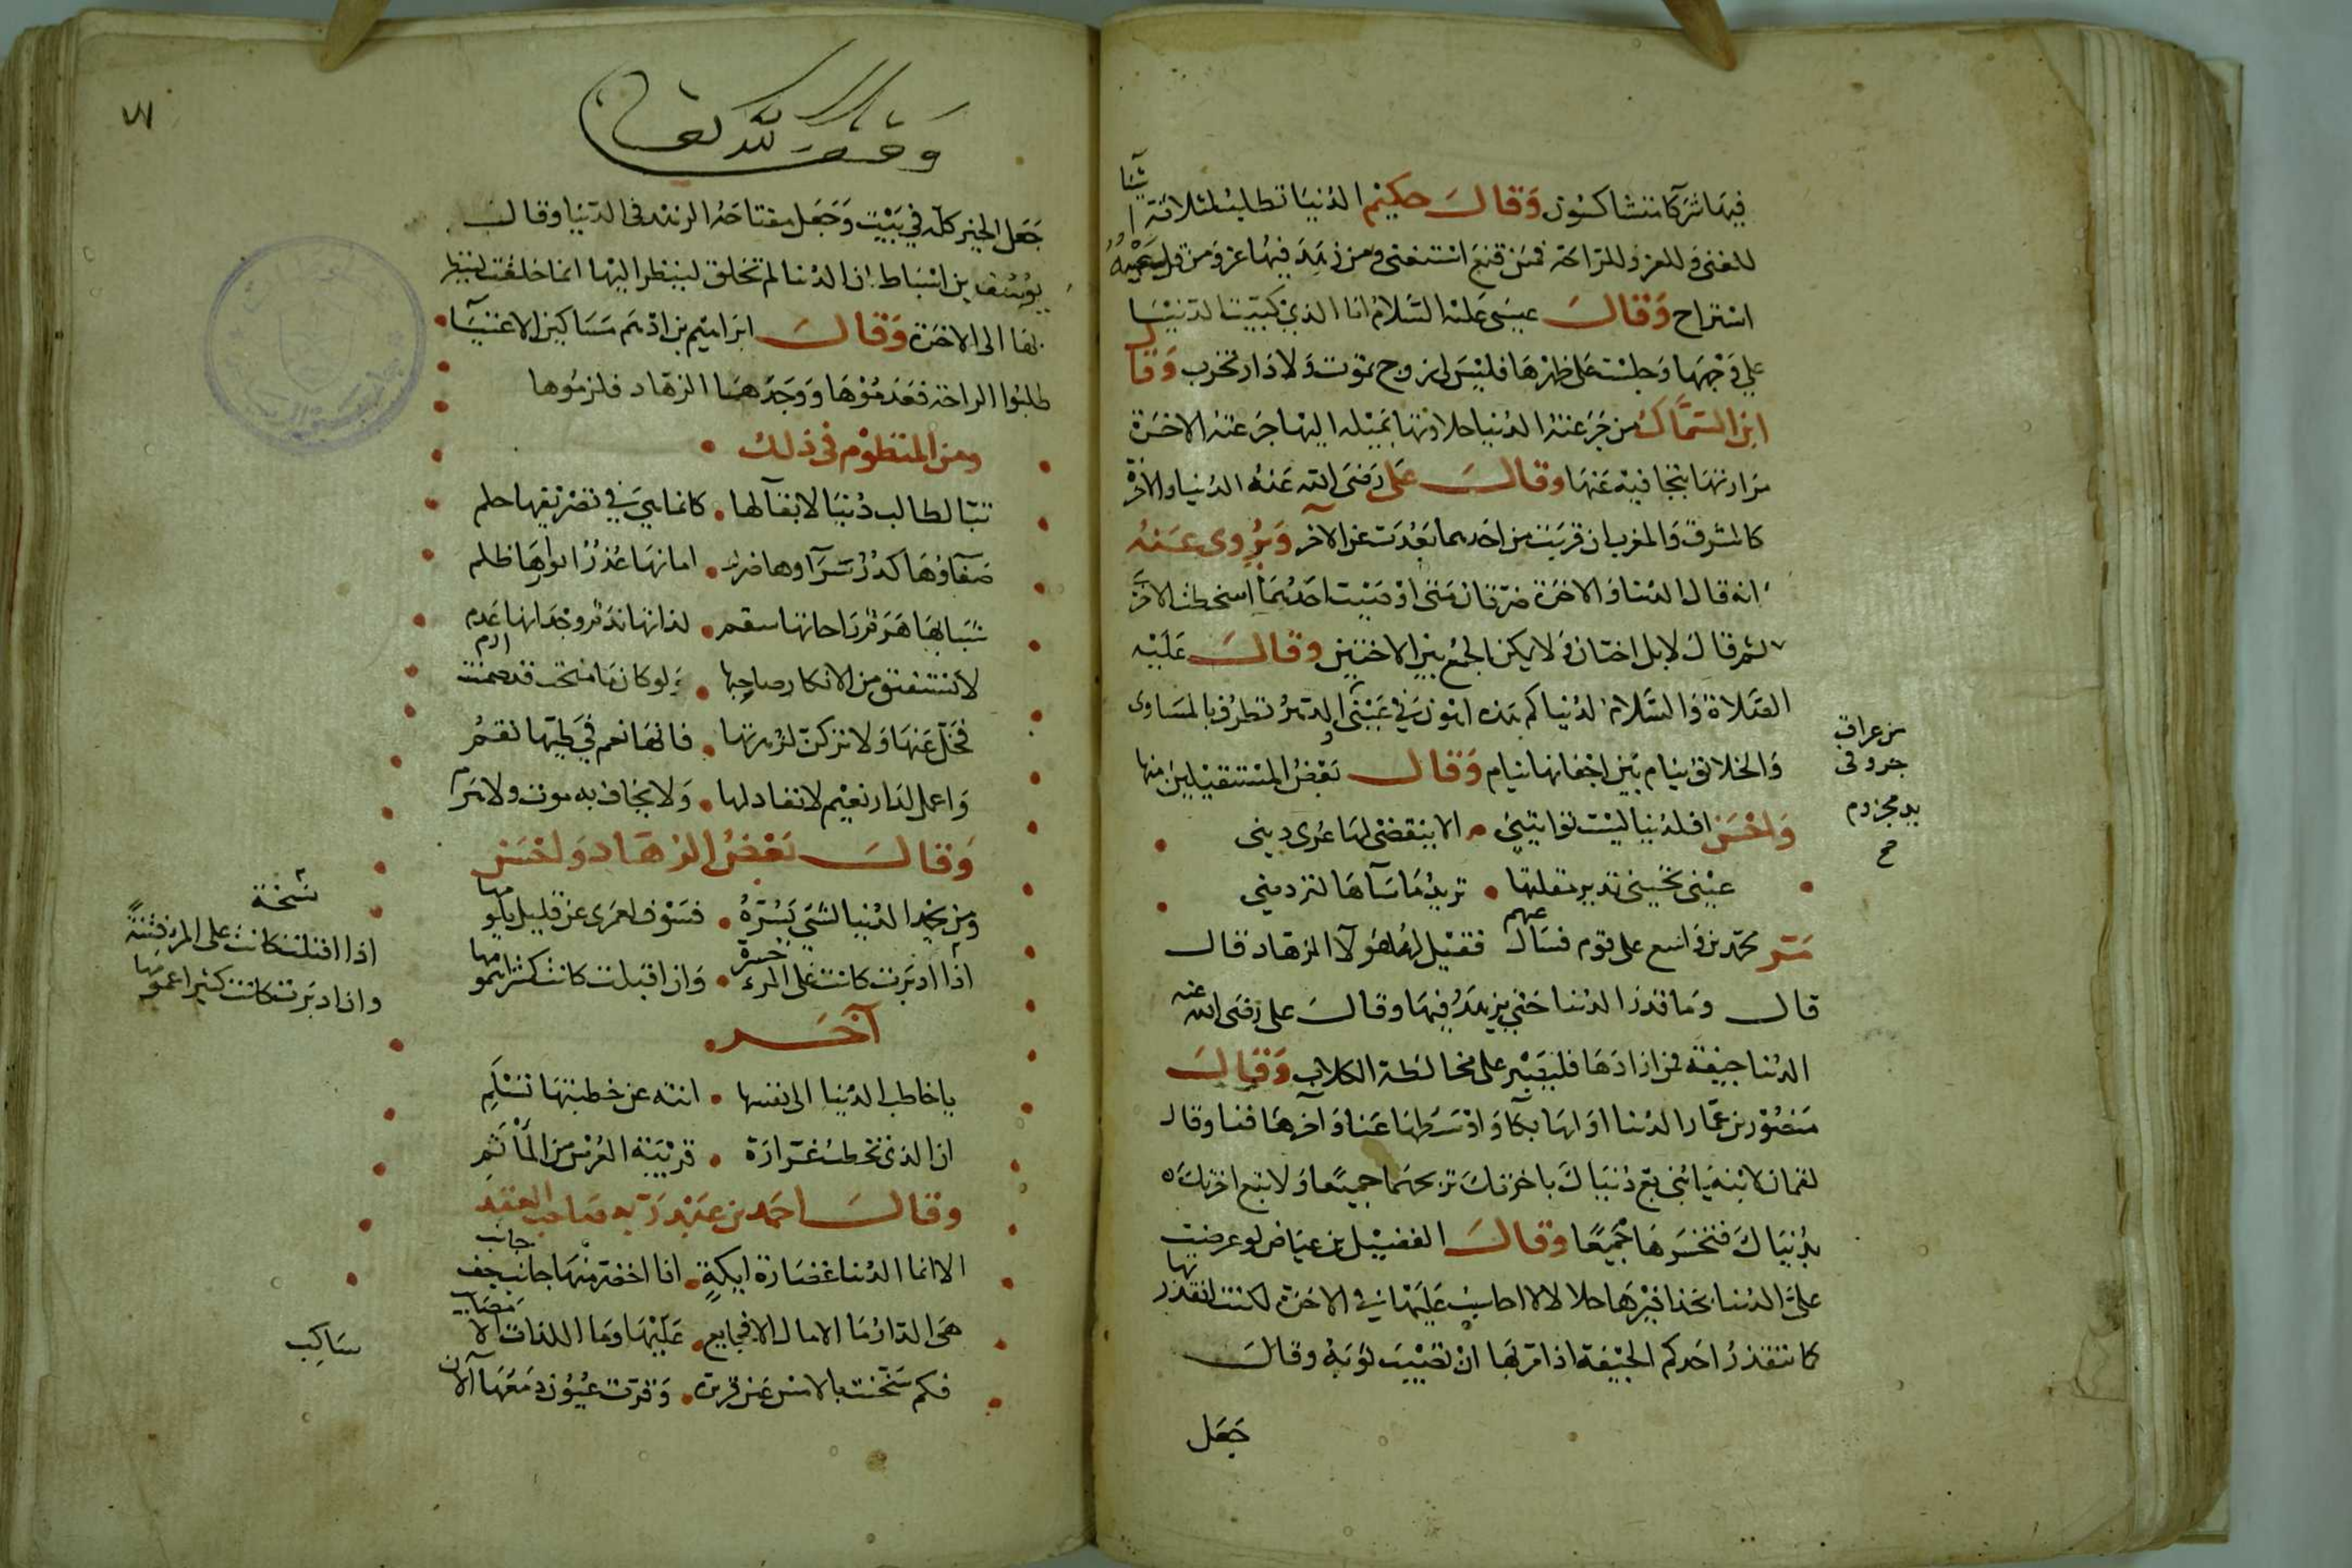 فيها شركا متشاكسون وقال حكيم الدنيا تطلب لثلاثة اشيا
للغنى وللعز وللراحة فمن قنع استغنى ومن زهد فيها عز ومن قل سعيه
استراح وقال عيسى عليه السلام انا الذي كببت الدنيا
على وجهها وجلست على ظهرها فليس لي زوج تموت ولا دار تخرب وقال
ابن السماك من جرعته الدنيا حلاوتها بميله اليها جرعته الاخرة
مرارتها بتجافيه عنها وقال على رضى الله عنه الدنيا والاخرة
كالمشرق والمغرب ان قربت من احدهما بعدت عن الآخر ويروى عنه
انه قال الدنيا والاخرة ضرتان متى ارضيت احدهما اسخطت الاخرى
ثم قال لا بل اختان ولا يمكن الجمع بين الاختين وقال عليه
الصلاة والسلام لدنياكم هذه اهون في عيني
من عراق
خنزير في
يد مجذوم
صح
والخلائق نيام بين اجفانها نيام وقال بعض المستقيلين منها
واحسن اف لدنيا ليست تواتيني الا بنقضى لها عرى ديني
عيني لحيني تدير مقلتها تريد ما ساها لترديني
مر محمد بن واسع على قوم فسال عنهم فقيل له هولا الزهاد فقال
قال وما قدر الدنيا حتى يزهد فيها وقال على رضى الله عنه
الدنيا جيفة فمن ارادها فليصبر على مخالطة الكلاب وقال
منصور بن عمار الدنيا اولها بكا واوسطها عنا وآخرها فنا وقال
لقمان لابنه يا بني بع دنياك باخرتك تربحهما جميعا ولا تبع اخرتك
بدنياك فتخسرهما جميعا وقال الفضيل بن عياض لو عرضت
على الدنيا بحذافيرها حلالا لا احاسب عليها في الاخرة لكنت اتقذرها
كما يتقذر احدكم الجيفة اذا مر بها ان تصيب ثوبه وقال
جعل
وقف لله تعالى
جعل الخير كله في بيت وجعل مفتاحه الزهد في الدنيا وقال
يوسف بن اسباط ان الدنيا لم تخلق لينظر اليها انما خلقت لينظر
بها الى الاخرة وقال ابراهيم بن ادهم مساكين الاغنيا
طلبوا الراحة فعدموها ووجدها الزهاد فلزموها
ومن المنظوم في ذلك
تبا لطالب دنيا لا بقآ لها كانما هي في تصريفها حلم
صفاوها كدر سرآوها ضرر امانها غدر انوارها ظلم
شبابها هرم راحاتها سقم لذاتها ندم وجدانها عدم
لا يستفيق من الانكاد صاحبها ولو كان ما منحت قد ضمنت ارم
فخل عنها ولا تركن لزهرتها فانها نعم في طيها نقم
واعمل لدار نعيم لا نفاد لها ولا يخاف به موت ولا هرم
وقال بعض الزهاد واحسن
ومن يحمد الدنيا لشي يسره فسوف لعمرى عن قليل يلومها
اذا ادبرت كانت على المرء حسرة وان اقبلت كانت كثيرا همومها
نسخة
اذا اقبلت كانت على المرء فتنة
وان ادبرت كانت كثيرا غمومها
آخر
يا خاطب الدنيا الى نفسها انته عن خطبتها تسلم
ان الذى تخطب غرارة قريبة العرس من المأتم
وقال احمد بن عبد ربه صاحب العقد
الا انما الدنيا غضارة ايكة اذا اخضر منها جانب جف جانب
هى الدار ما الامال الا فجايع عليها وما اللذات الا مصايب
فكم سخنت بالامس عين قريرة وقرت عيون دمعها الآن
ساكب